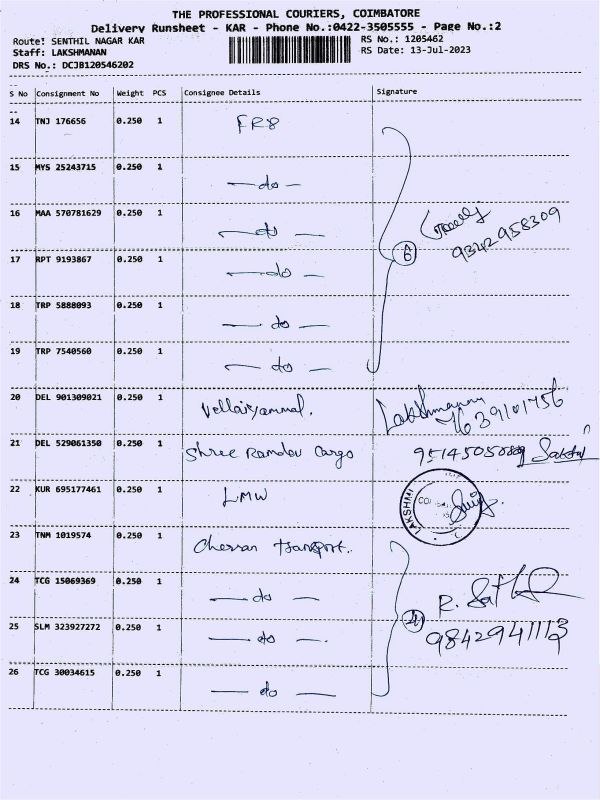 THE PROFESSIONAL COURIERS, COIMBATORE
Delivery Runsheet - KAR - Phone No.:0422-3505555 - Page No.:2
Route: SENTHIL NAGAR KAR RS No.: 1205462
Staff: LAKSHMANAN RS Date: 13-Jul-2023
DRS No.: DCJB120546202
S No Consignment No Weight PCS Consignee Details Signature
14 TNJ 176656 0.250 1 FR8
15 MYS 25243715 0.250 1 — do —
16 MAA 570781629 0.250 1 — do —
9342958309
17 RPT 9193867 0.250 1 — do —
6
18 TRP 5888093 0.250 1 — do —
19 TRP 7540560 0.250 1 — do —
20 DEL 901309021 0.250 1 Vellaiyammal. Lakshmanan
7639101756
21 DEL 529061350 0.250 1 Shree Ramdev Cargo
22 KUR 695177461 0.250 1 LMW
LAKSHMI
23 TNM 1019574 0.250 1 Cheran Transport.
24 TCG 15069369 0.250 1 — do —
R.
25 SLM 323927272 0.250 1 — do —. 4
9842941113
26 TCG 30034615 0.250 1 — do —